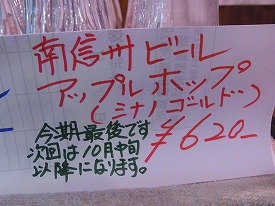 南信州ビール
アップルホップ
(シナノゴールド)
¥620-
今期最後です
次回は10月中旬
以降になります。